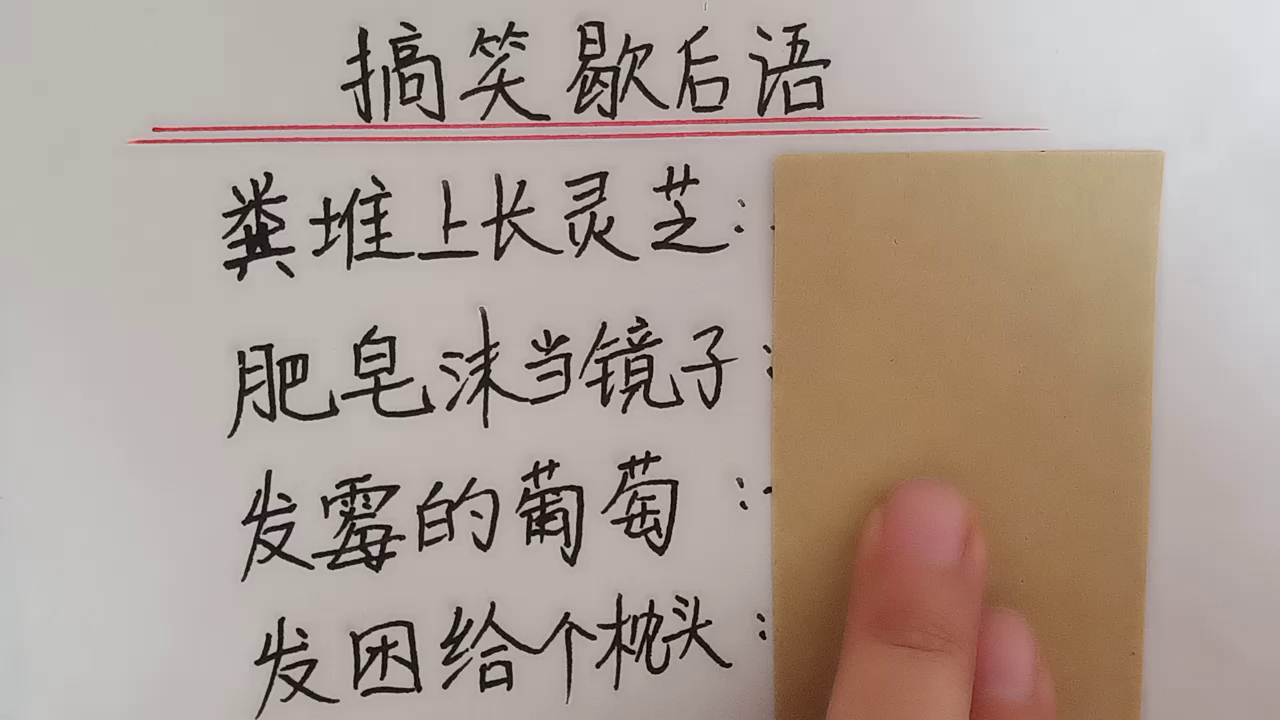 搞笑歇后语
粪堆上长灵芝:
肥皂沫当镜子:
发霉的葡萄:
发困给个枕头: